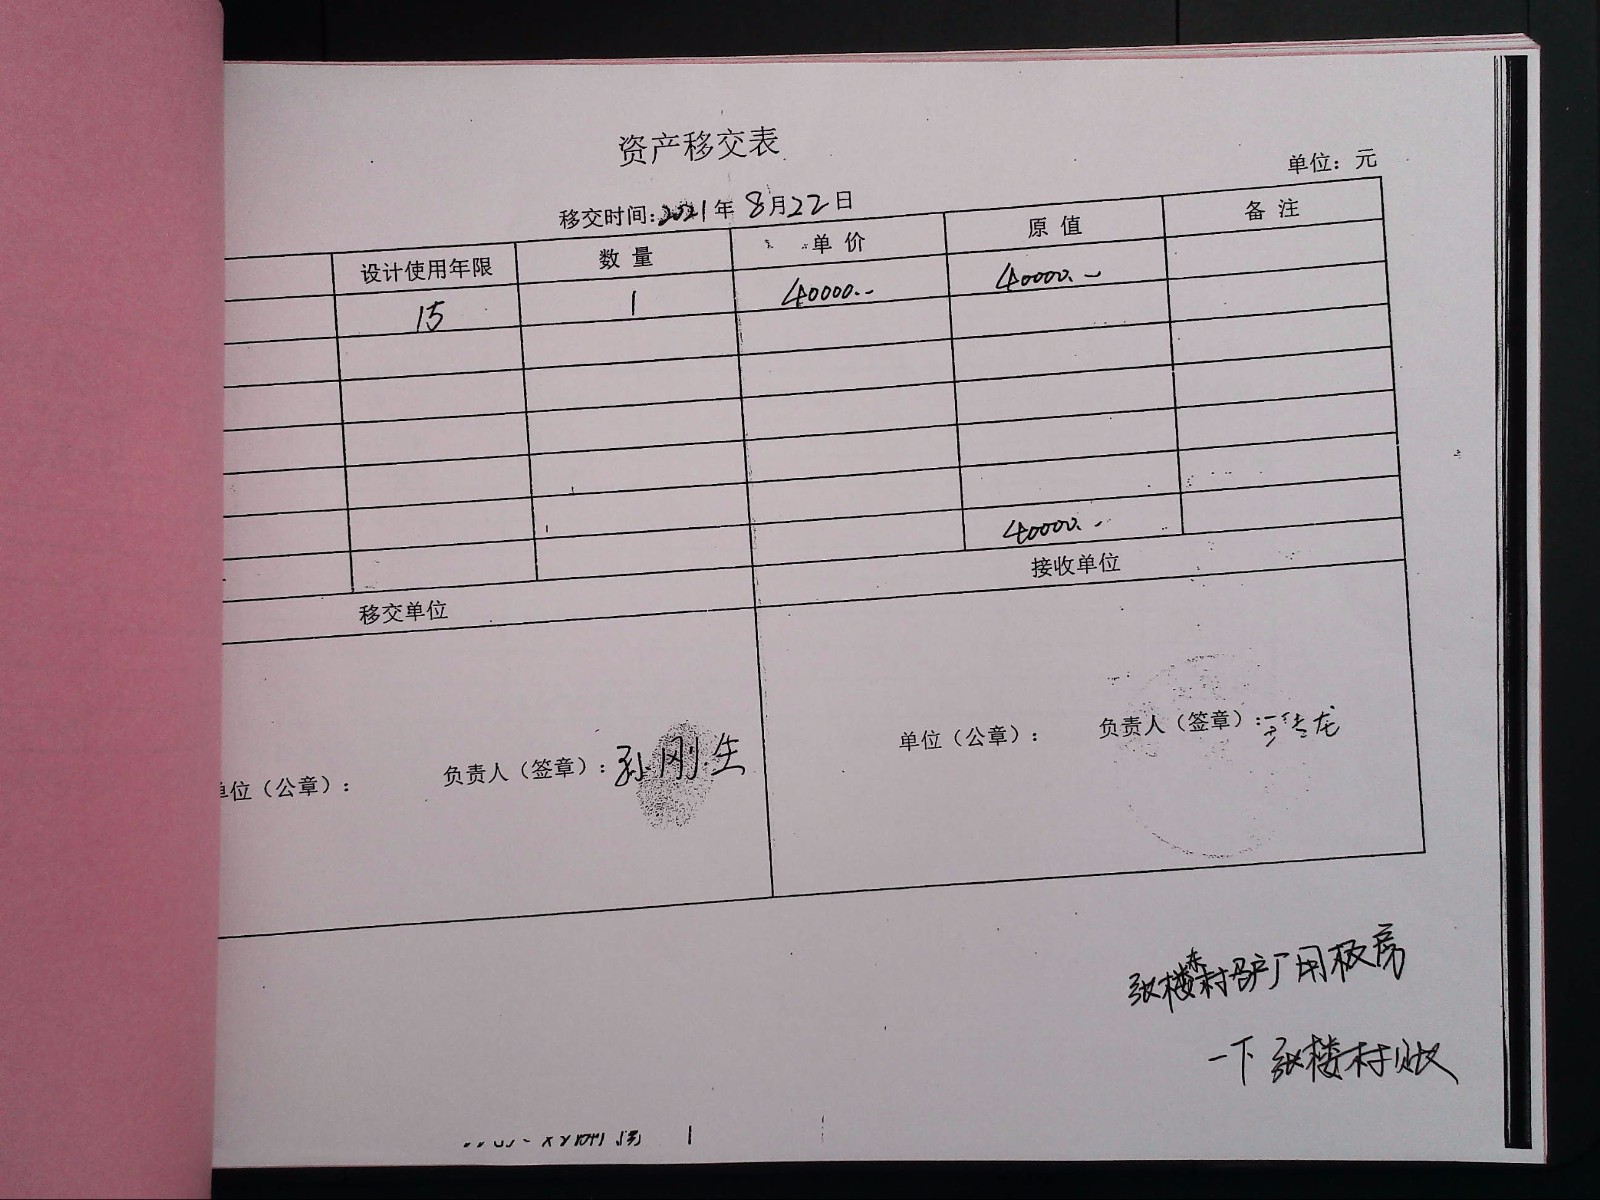 资产移交表
单位：元
移交时间:2021年8月22日
设计使用年限 数量 单价 原值 备注
15 1 40000.- 40000.-
40000.-
移交单位 接收单位
单位（公章）： 负责人（签章）：孙刚生 单位（公章）： 负责人（签章）：
张楼村驴厂用板房
一下张楼村账